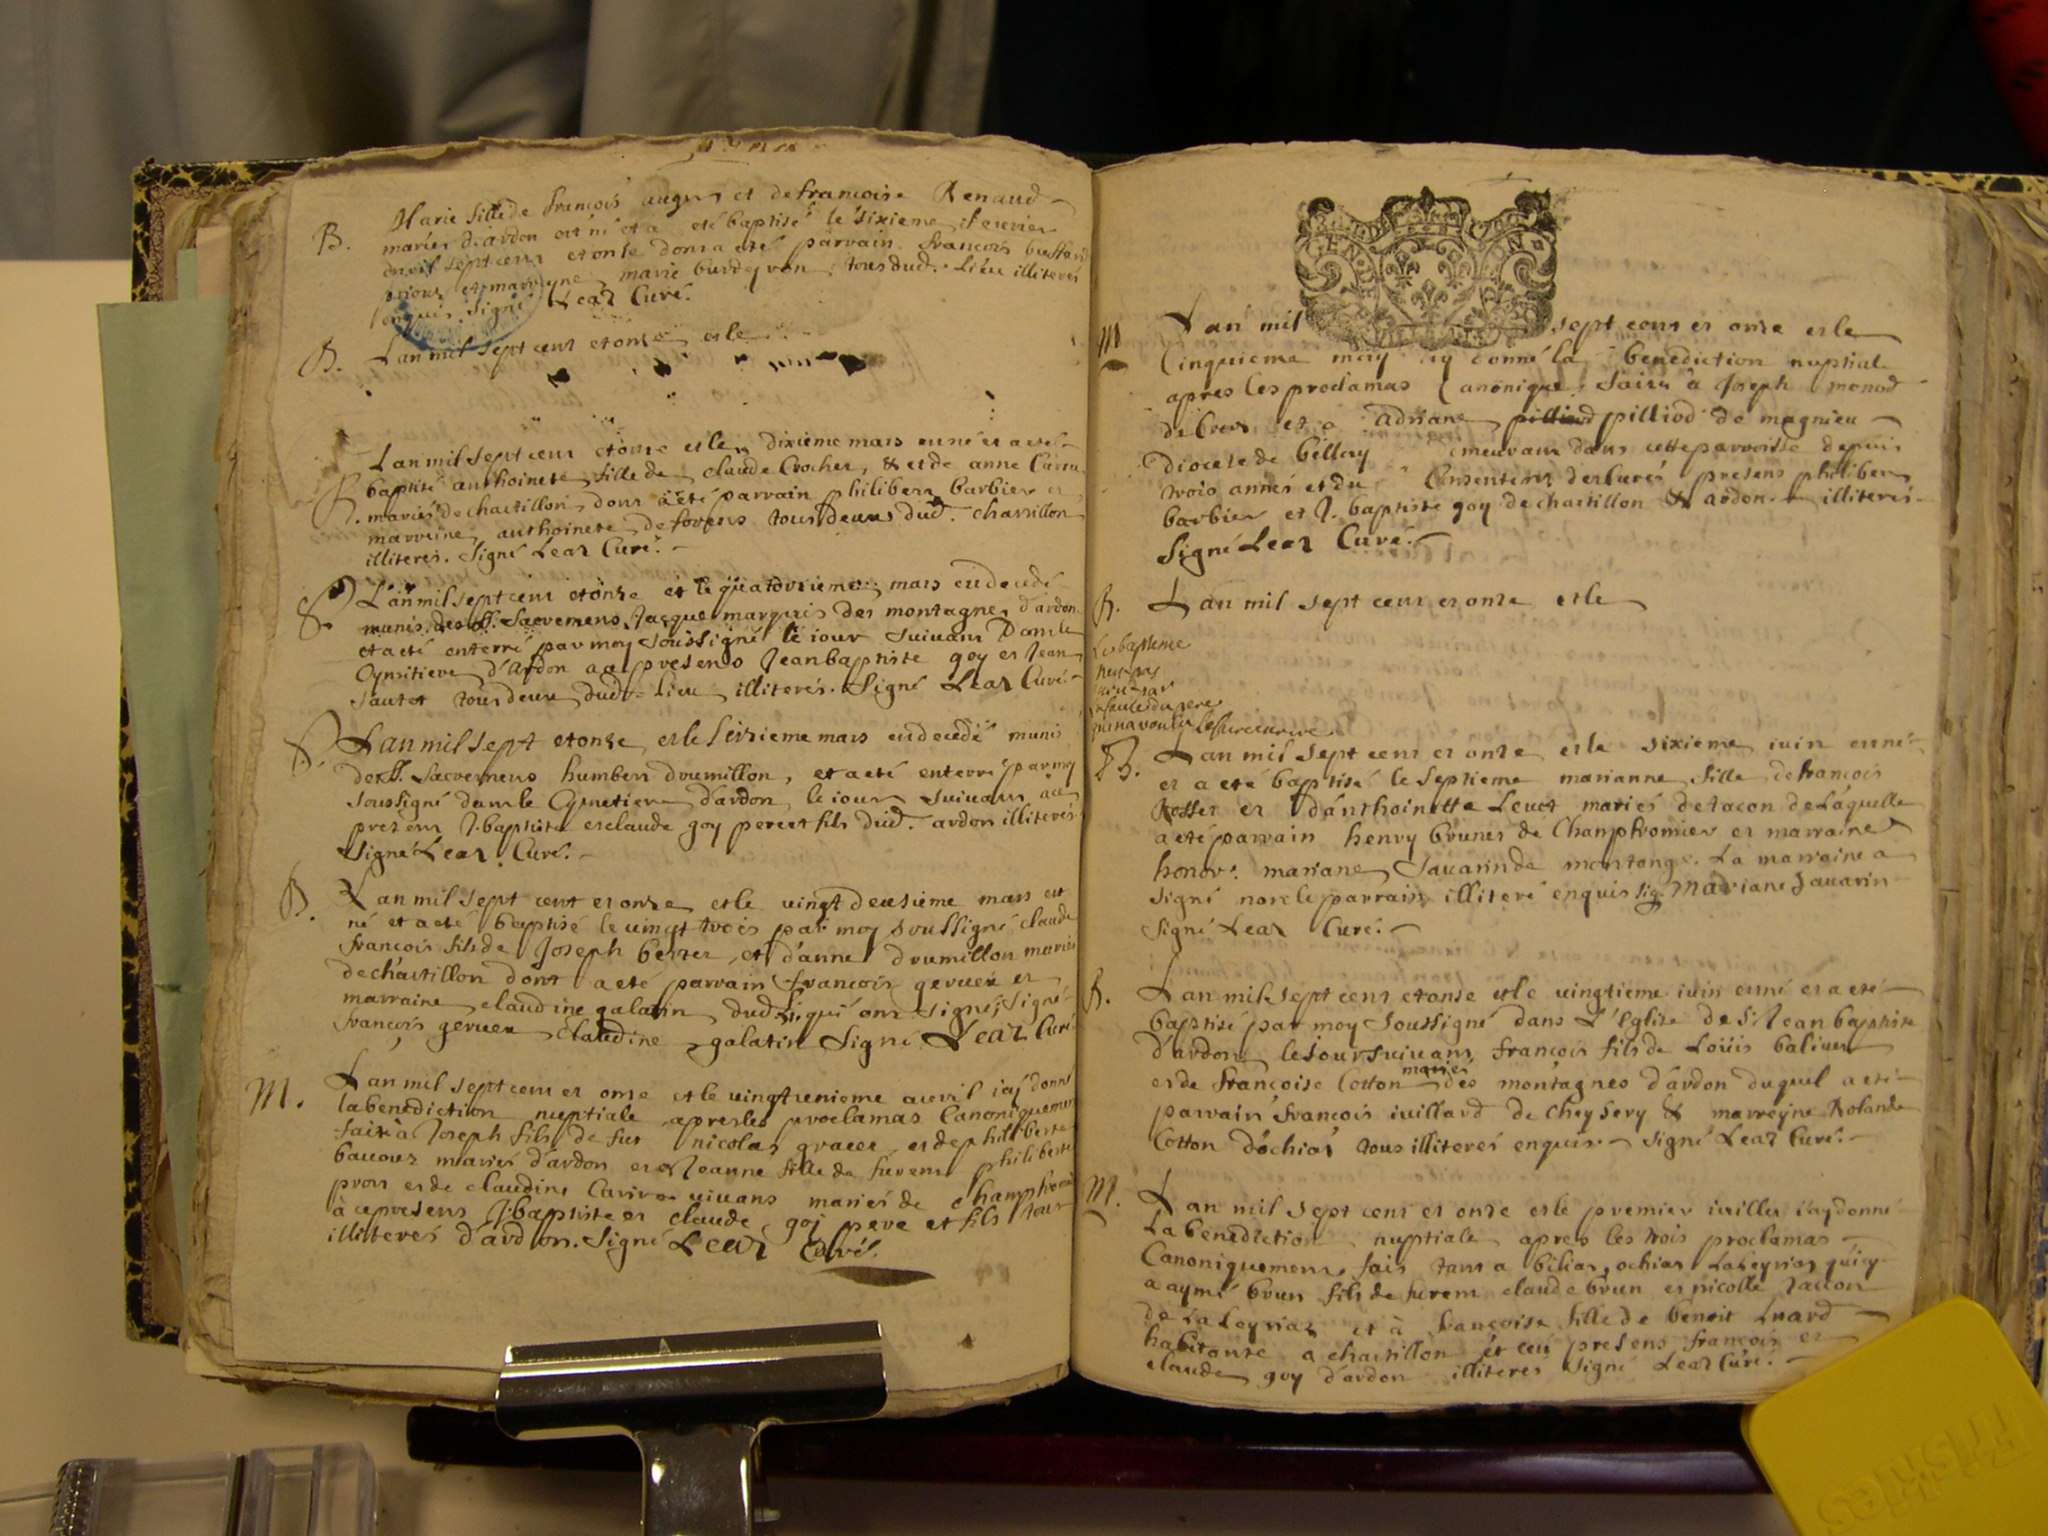 B. Marie fille de françois auger et de francoise Renaud
mariés d'ardon est né et a eté baptisé le sixieme feuvrier
mil sept cens et onze dont a eté parvain francois
et marreyne marie tous dud. Lieu illiterés
enquis. Signé Leaz Curé.
B. L'an mil sept cens et onze et le
L'an mil sept cens et onze et le dixieme mars est né et a eté
B. baptisé anthoinete fille de claude Crochet, & et de anne
mariés de chastillon dont a eté parvain philibert barbier et
marreine anthoinete de tous deux dud. chastillon
illiterés. Signé Leaz Curé.
S. L'an mil sept cens et onze et le quatorzieme mars est decedé
munis des SS. Sacremens Jacque marquis des montagnes d'ardon
et a eté enterré par moy soussigné le jour suivant Dans le
Cymitiere d'Ardon a ce presens Jean baptiste goy et Jean
sautet tous deux dud. lieu illiterés. Signé Leaz Curé.
S. L'an mil sept et onze et le seizieme mars est decedé munis
des SS. Sacremens humbert drumillon, et a eté enterré par moy
soussigné dans le Cymetiere d'ardon le jour suivant a ce
presens J. baptiste et claude goy pere et fils dud. ardon illiterés
Signé Leaz Curé.
B. L'an mil sept cent et onze et le vingt deusieme mars est
né et a eté baptisé le vingt trois par moy soussigné claude
françois fils de Joseph berrer et d'anne drumillon mariés
de chastillon dont a eté parvain francois gervex et
marraine claudine galatin dud. Li. qui ont signé, Signé
françois gervex Claudine galatin Signé Leaz Curé
M. L'an mil sept cens et onze et le vingtunieme avril j'ay donné
la benediction nuptiale apres les proclamas Canoniquement
faits à Joseph fils de fut nicolas gracer et de philiberte
mariés d'ardon et à Jeanne fille de furent philiberte
et de claudine vivans mariés de Champfromier
à ce presens J. baptiste et claude goj pere et fils tous
illiterés d'ardon. Signé Leaz Curé.
GEN
M L'an mil sept cens et onze et le
Cinquieme may ay donné la benediction nuptial
apres les proclamas Canonique faits à Joseph monod
de et a Adriane pilliod pilliod de magnieu
Diocese de bellay demeurant dans cette parroisse depuis
trois annés et du Consentems des curés presens philibert
barbier et J. baptiste goy de chastillon & ardon illiterés
Signé Leaz Curé.
B. L'an mil sept cens et onze et le
Le baptieme
n'est pas
par
la faute du pere
qui n'a voulu
B. L'an mil sept cens et onze et le sixieme iuin est né
et a eté baptisé le septieme marianne fille de francois
Rosset et d'anthoinette Levet mariés de tacon de Laquelle
a eté parvain henry brunet de Champfromier et marraine
honor. mariane Savarin de montange. La marraine a
signé non le parrain illiteré enquis sig. Mariane Savarin
Signé Leaz Curé.
B. L'an mil sept cens et onze et le vingtieme iuin est né et a eté
baptisé par moy soussigné dans L'Eglise de St Jean baptiste
d'ardon le jour suivant francois fils de Loüis balivet
et de françoise Cotton mariés des montagnes d'ardon duquel a eté
parvain francois iuillard de Cheysery & marreyne Rolande
Cotton d'ochias tous illiterés enquis. Signé Leaz Curé.
M. L'an mil sept cens et onze et le premier iuillet j'ay donné
La benediction nuptiale apres les trois proclamas
Canoniquement fais tant a bilias, ochias Laleyriaz qu'icy
a aymé brun fils de furent claude brun et nicolle tacon
de La Leyriaz et à françoise fille de benoit Luard
habitante a chastillon et ceu presens francois et
claude goy d'ardon illiterés Signé Leaz Curé.
Friskies